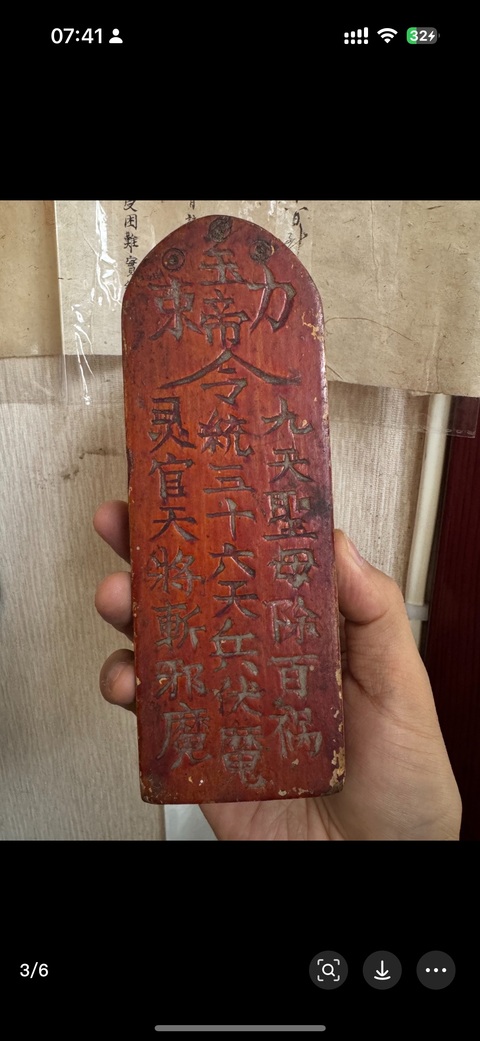 07:41
32
困難實
束 力
九天聖母除百禍
玉帝令統三十六天兵伏
灵官天將斬邪魔
3/6